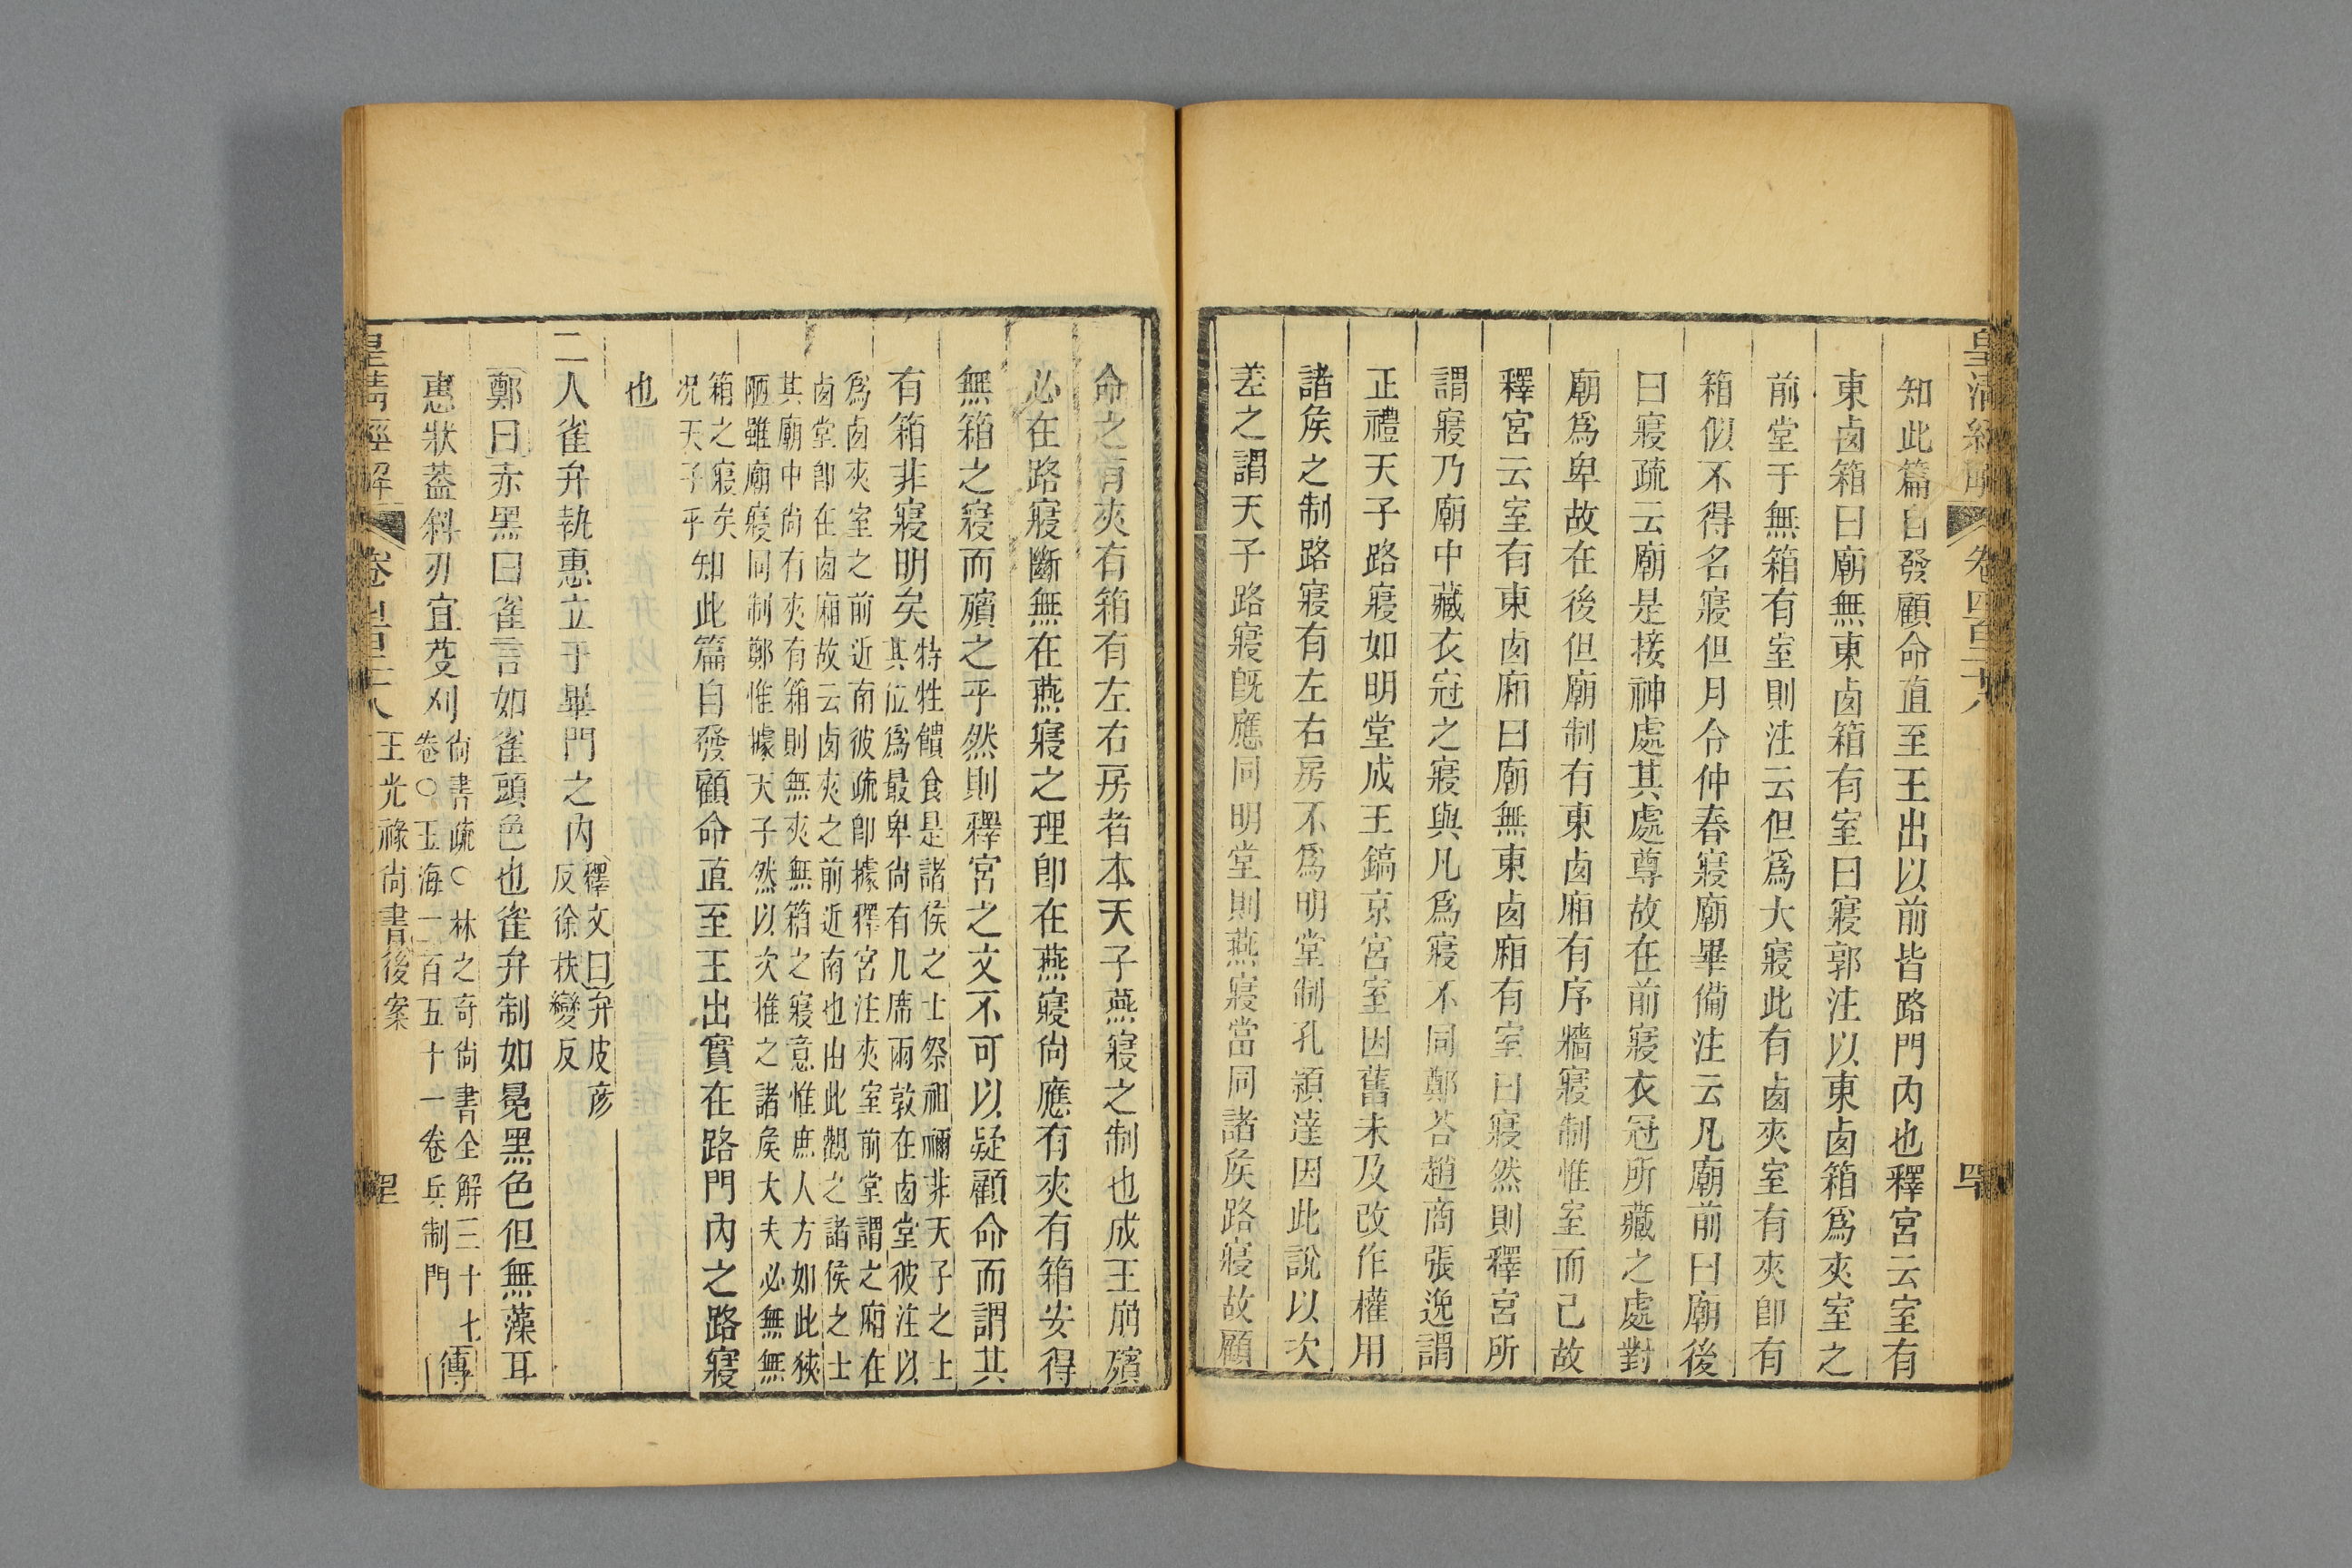 皇清經解
卷四百二十八
知此篇自發顧命直至王出以前皆路門內也釋宮云室有
東㢴箱曰廟無東㢴箱有室曰寢郭注以東㢴箱爲夾室之
前堂于無箱有室則注云但爲大寢此有㢴夾室有夾卽有
箱似不得名寢但月令仲春寢廟畢備注云凡廟前曰廟後
曰寢疏云廟是接神處其處尊故在前寢衣冠所藏之處對
廟爲卑故在後但廟制有東㢴廂有序牆寢制惟室而已故
釋宮云室有東㢴廂曰廟無東㢴廂有室曰寢然則釋宮所
謂寢乃廟中藏衣冠之寢與凡爲寢不同鄭荅趙商張逸謂
正禮天子路寢如明堂成王鎬京宮室因舊未及改作權用
諸矦之制路寢有左右房不爲明堂制孔穎達因此說以次
差之謂天子路寢旣應同明堂則燕寢當同諸矦路寢故顧
命之有夾有箱有左右房者本天子燕寢之制也成王崩殯
必在路寢斷無在燕寢之理卽在燕寢尙應有夾有箱安得
無箱之寢而殯之乎然則釋宮之文不可以疑顧命而謂其
有箱非寢明矣特牲饋食是諸侯之士祭祖禰非天子之士
其位爲最卑尙有几席兩敦在㢴堂彼注以
爲㢴夾室之前近南彼疏卽據釋宮注夾室前堂謂之廂在
㢴堂卽在㢴廂故云㢴夾之前近南也由此觀之諸侯之士
其廟中尙有夾有箱則無夾無箱之寢意惟庶人方如此狹
陋雖廟寢同制鄭惟據天子然以次推之諸矦大夫必無無
箱之寢矣
况天子乎知此篇自發顧命直至王出實在路門內之路寢
也
二人雀弁執惠立于畢門之內釋文曰弁皮彥
反徐扶變反
鄭曰赤黑曰雀言如雀頭色也雀弁制如冕黑色但無藻耳
惠狀蓋斜刃宜芟刈尙書疏○林之奇尙書全解三十七
卷○玉海一百五十一卷兵制門傳
皇清經解
王光祿尙書後案